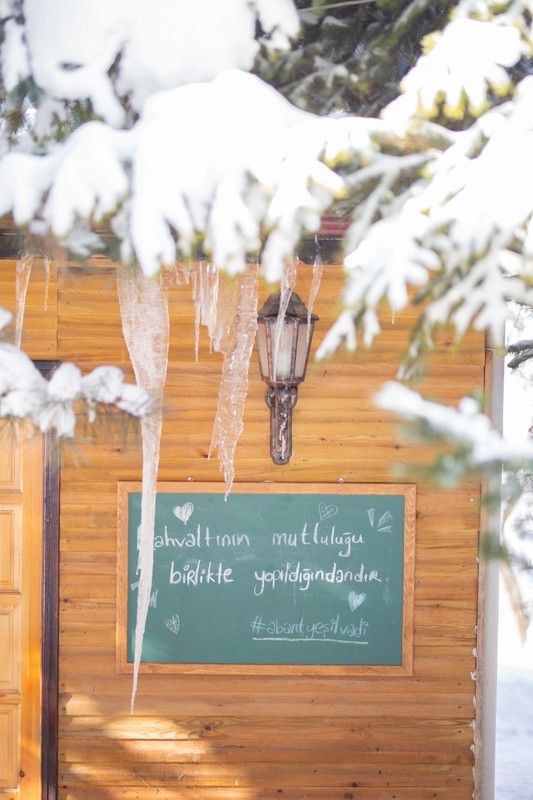 Kahvaltının mutluluğu
birlikte yapıldığındandır
#abantyeşilvadi